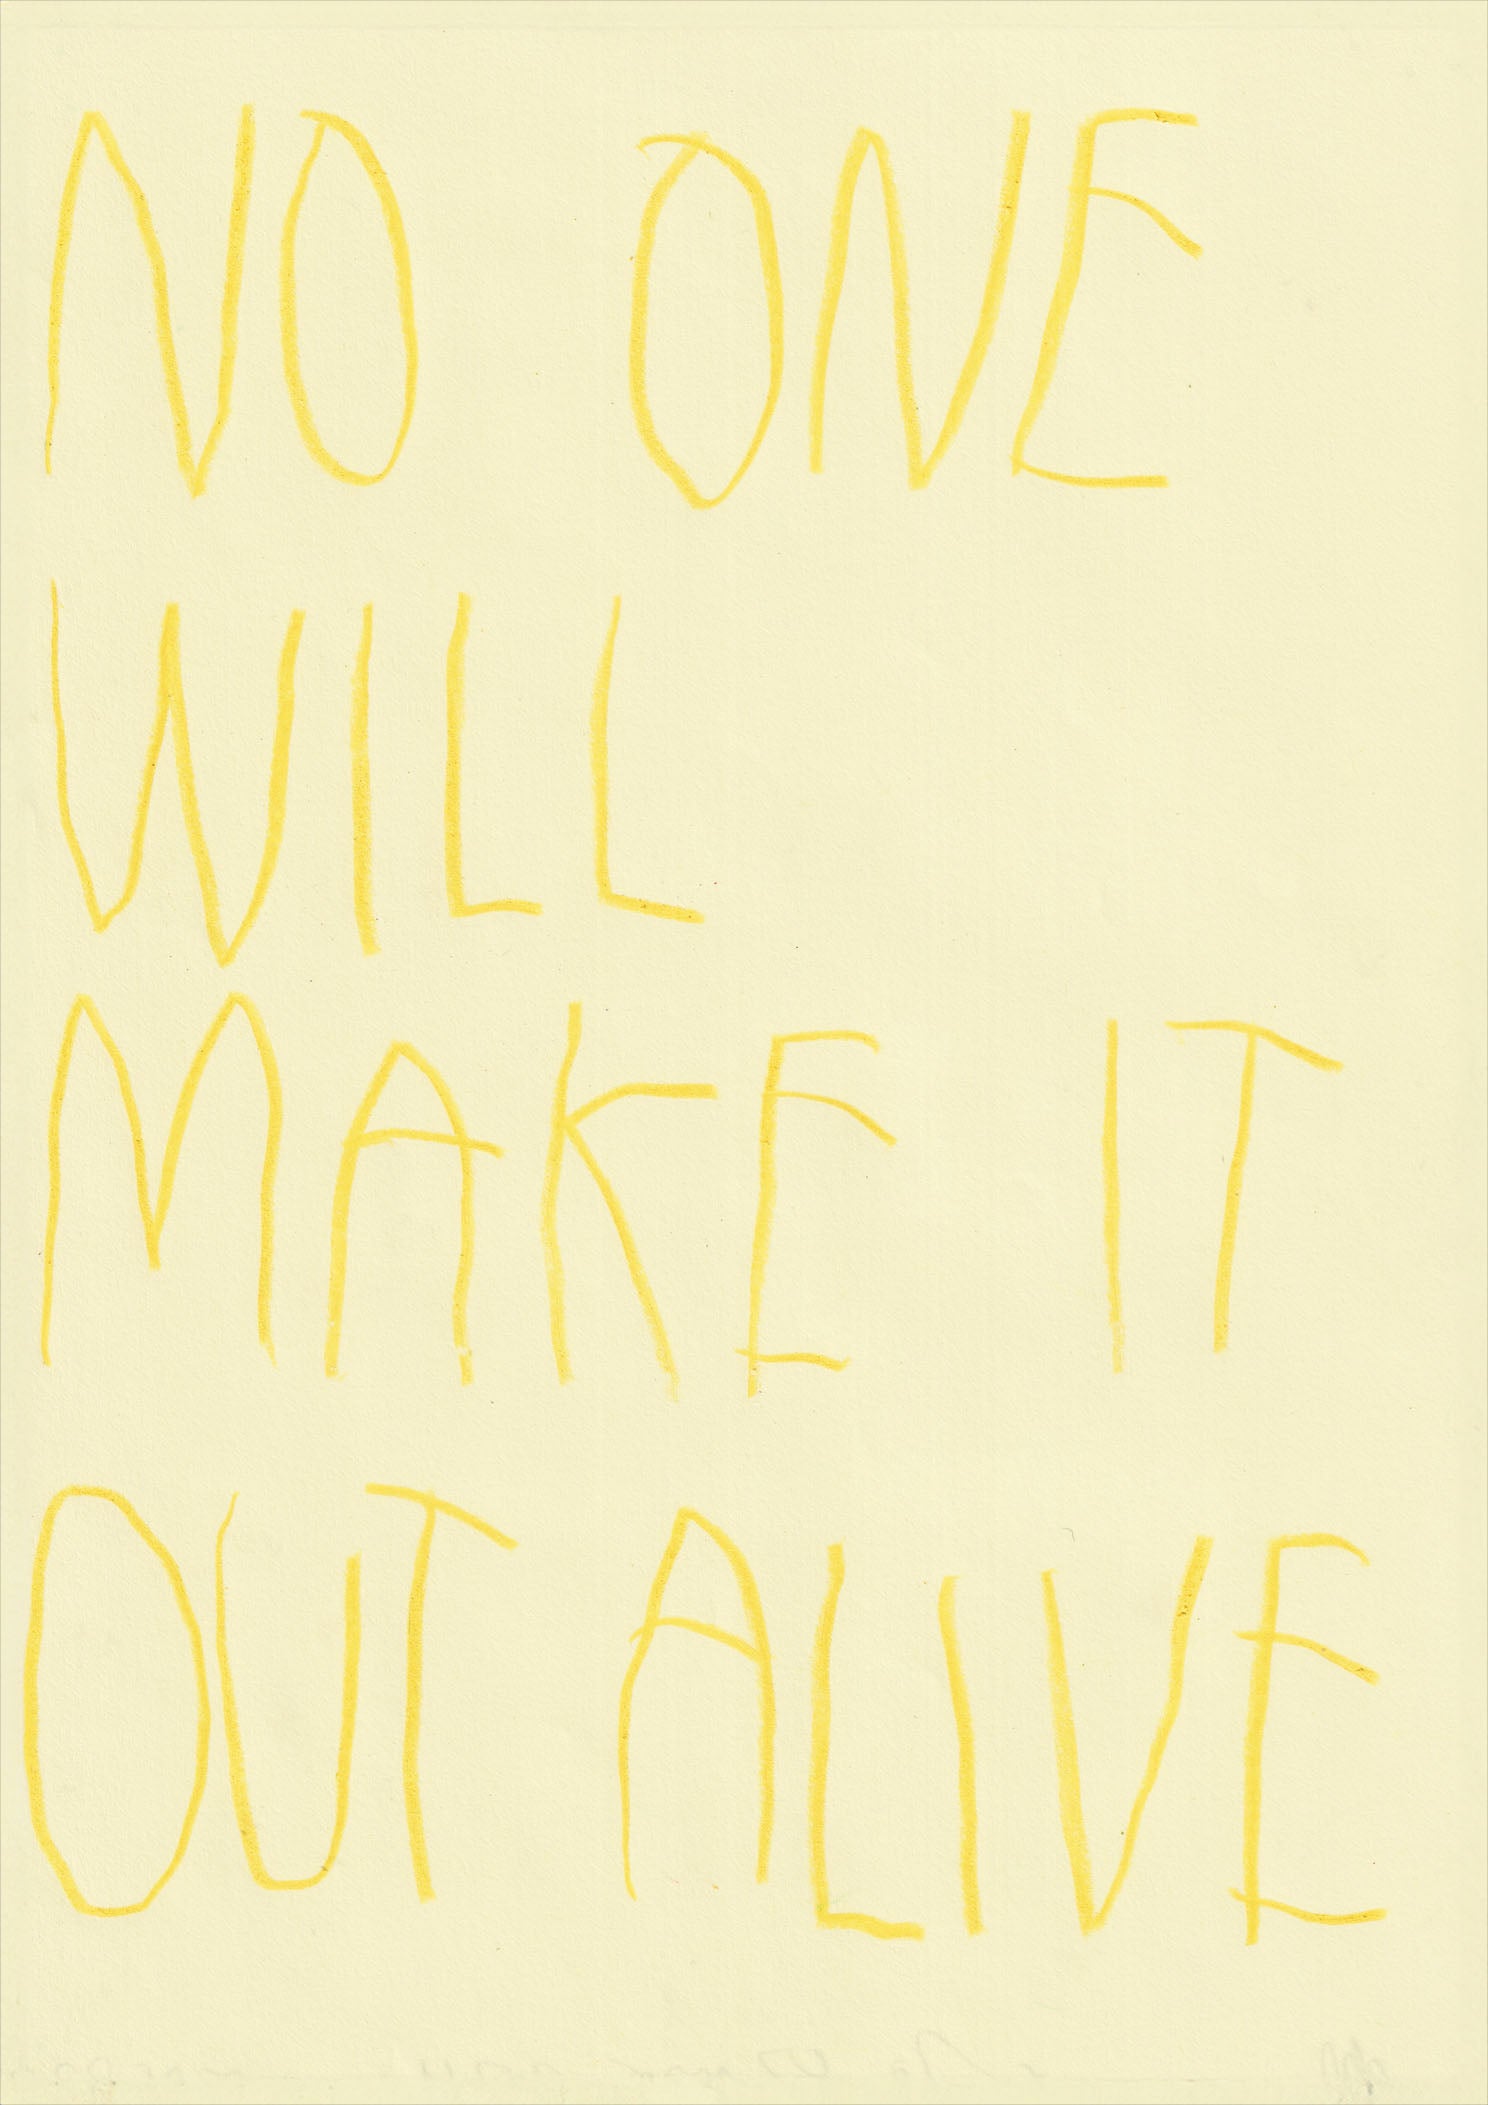 NO ONE
WILL
MAKE IT
OUT ALIVE